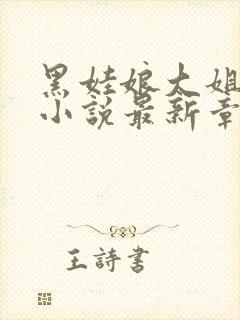 黑娃娘大姐
小说最新章
王詩書